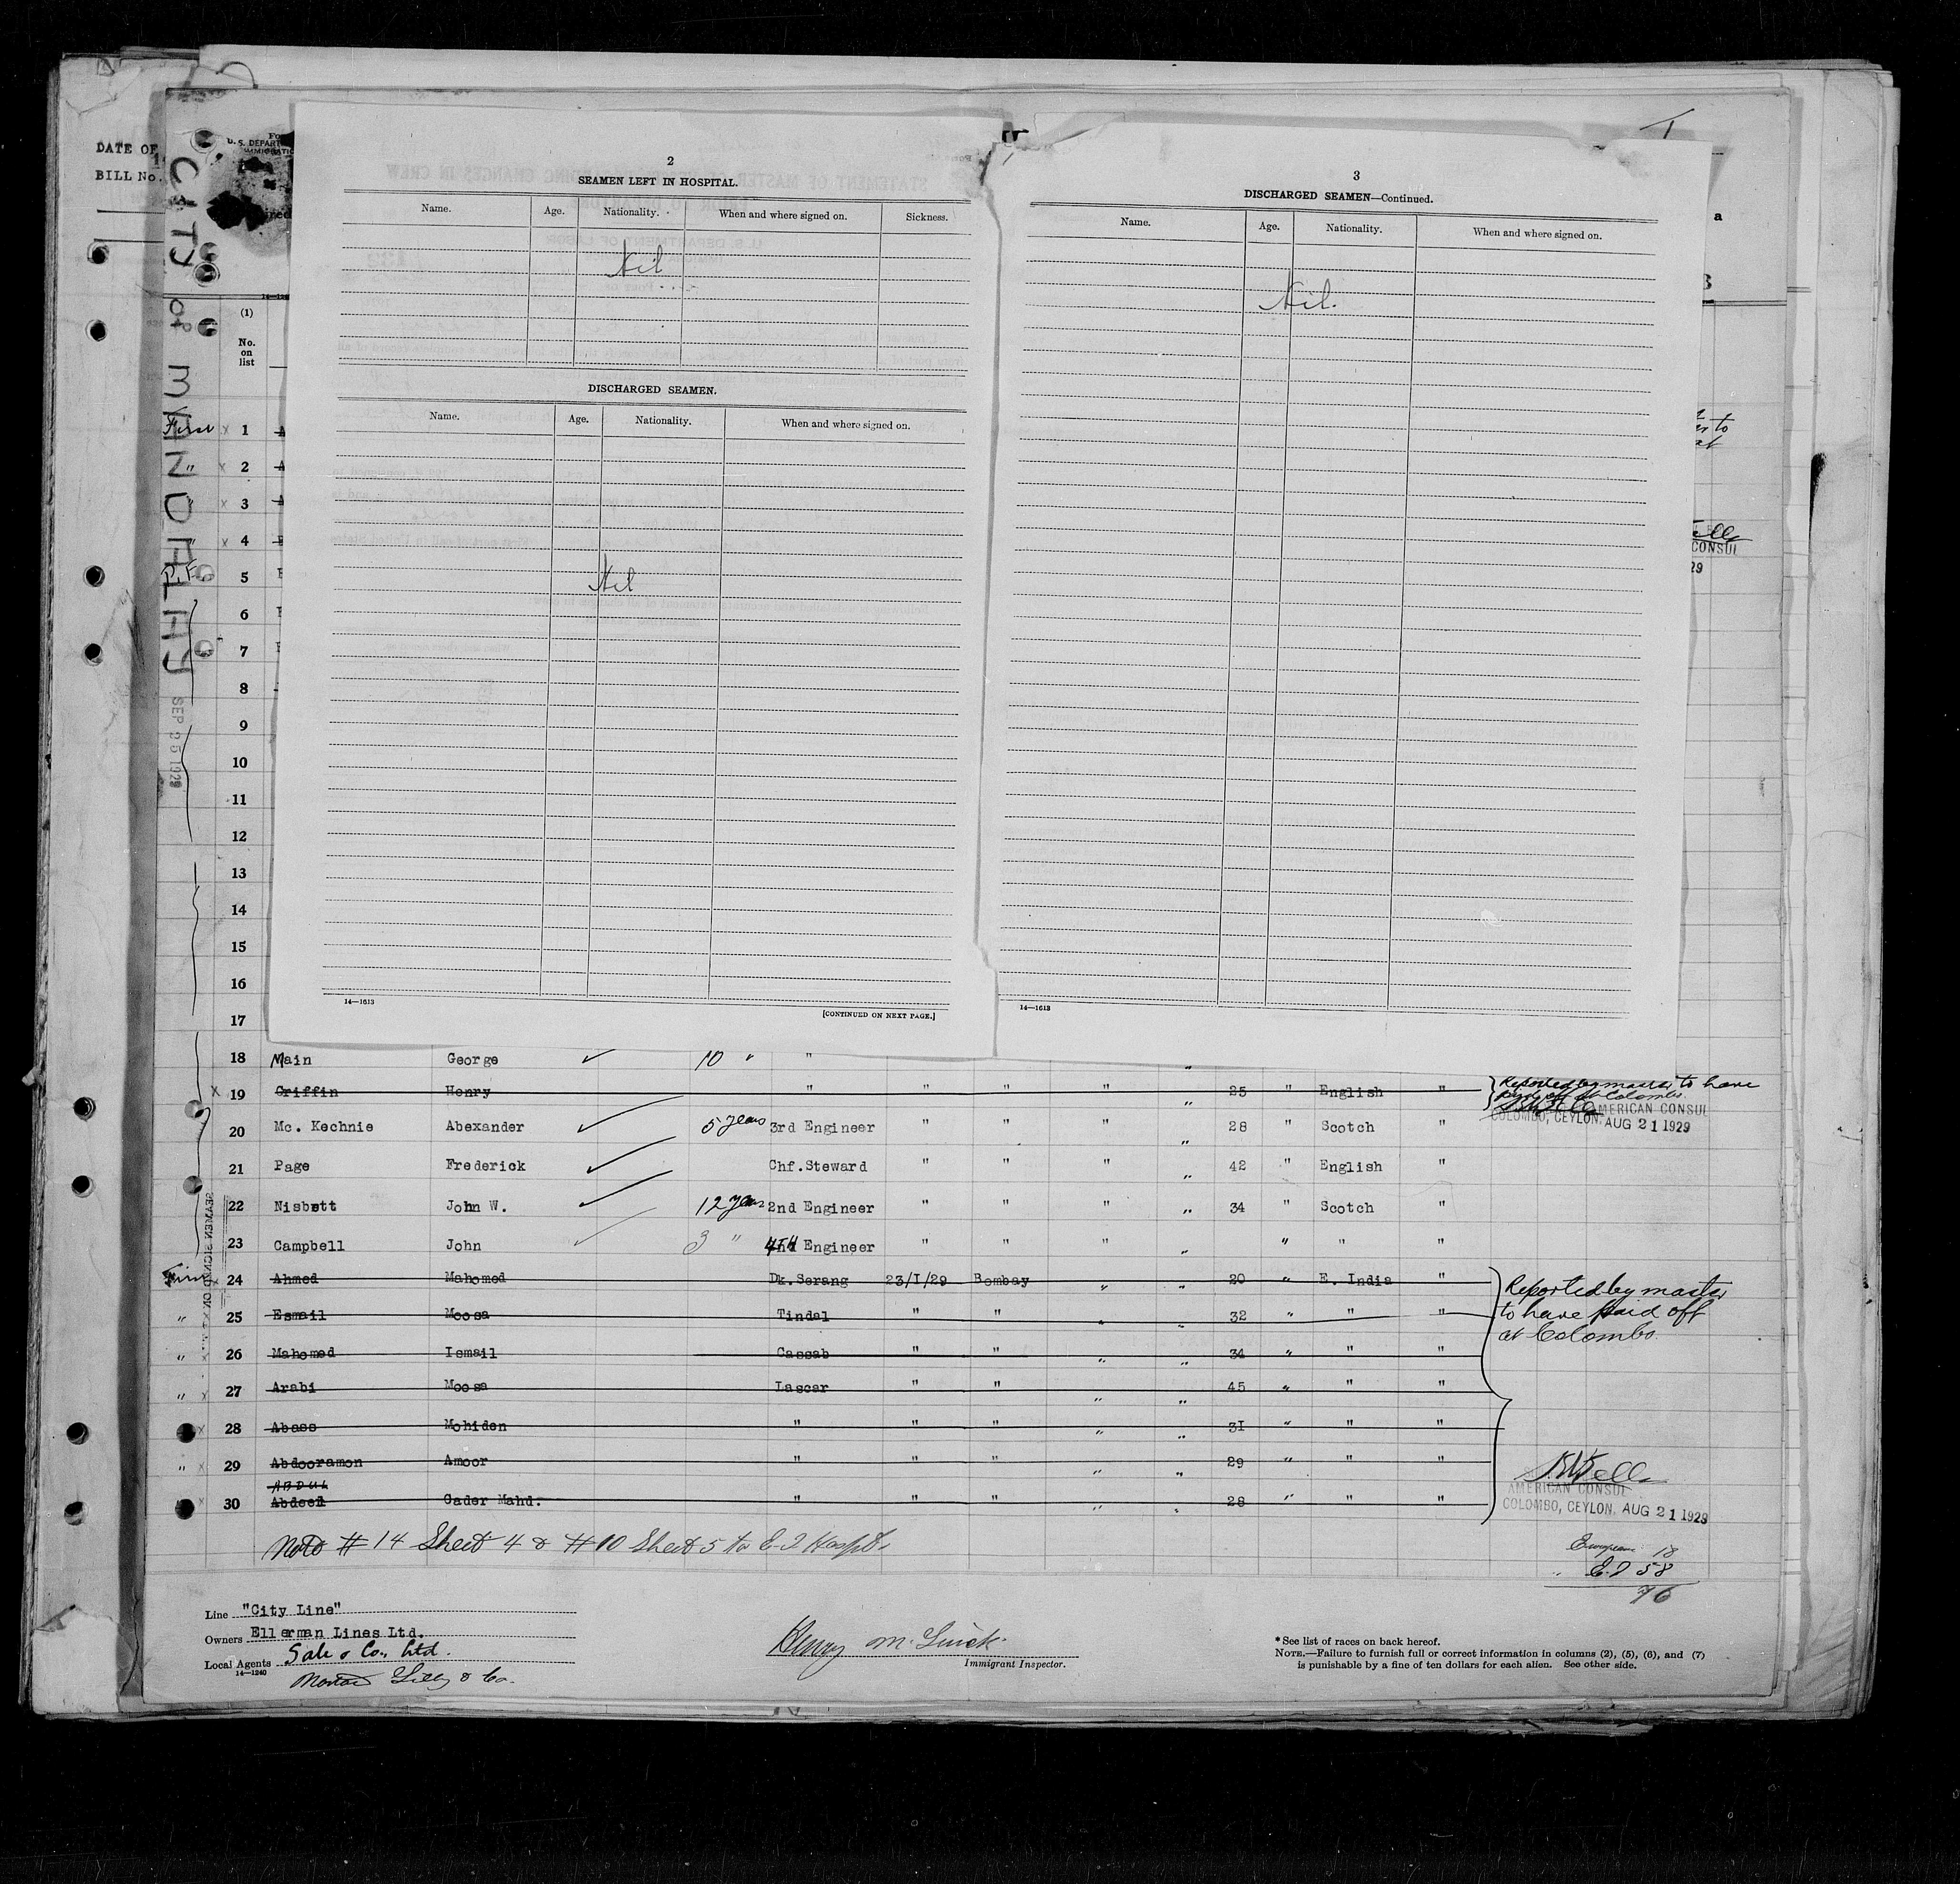 DATE OF
BILL No.
U. S. DEPART
IMMIGRATIO
CITY OF MANDALAY
SEP 25 1929
(1)
No.
on
list
2
SEAMEN LEFT IN HOSPITAL.
Name. Age. Nationality. When and where signed on. Sickness.
Nil
DISCHARGED SEAMEN.
Name. Age. Nationality. When and where signed on.
Nil
14—1613
[CONTINUED ON NEXT PAGE.]
3
DISCHARGED SEAMEN—Continued.
Name. Age. Nationality. When and where signed on.
Nil.
14—1613
a
to
at
CONSUL
29
First x 1
" x 2
" x 3
" x 4
5
6
7
8
9
10
11
12
13
14
15
16
17
18 Main George ✓ 10 " "
x 19 Griffin Henry " " " " " 25 " English "
Reported by master to have
paid off at Colombo.
AMERICAN CONSUL
COLOMBO, CEYLON. AUG 21 1929
20 Mc. Kechnie Abexander ✓ 5 years 3rd Engineer " " " " 28 " Scotch "
21 Page Frederick ✓ Chf. Steward " " " " 42 " English "
22 Nisbett John W. ✓ 12 years 2nd Engineer " " " " 34 " Scotch "
23 Campbell John ✓ 3 " 4TH Engineer " " " " " " "
SEAMEN SIGNED ON
First x 24 Ahmed Mahomed Dk. Serang 23/I/29 Bombay " " 20 " E. India "
" 25 Esmail Moosa Tindal " " " " 32 " " "
" x 26 Mahomed Ismail Cassab " " " " 34 " " "
" x 27 Arabi Moosa Lascar " " " " 45 " " "
x 28 Abass Mohiden " " " " " 31 " " "
" x 29 Abdooramon Amoor " " " " " 29 " " "
ABDUL
x 30 Abdeel Gader Mahd. " " " " " 28 " " "
Reported by master
to have paid off
at Colombo
AMERICAN CONSUL
COLOMBO, CEYLON. AUG 21 1929
Note # 14 Sheet 4 & # 10 Sheet 5 to E-I Hospt.
European 18
E.I 58
76
Line "City Line"
Owners Ellerman Lines Ltd.
Local Agents Sale & Co., Ltd.
14—1240
Norton Lilly & Co.
Immigrant Inspector.
* See list of races on back hereof.
NOTE.—Failure to furnish full or correct information in columns (2), (5), (6), and (7)
is punishable by a fine of ten dollars for each alien. See other side.